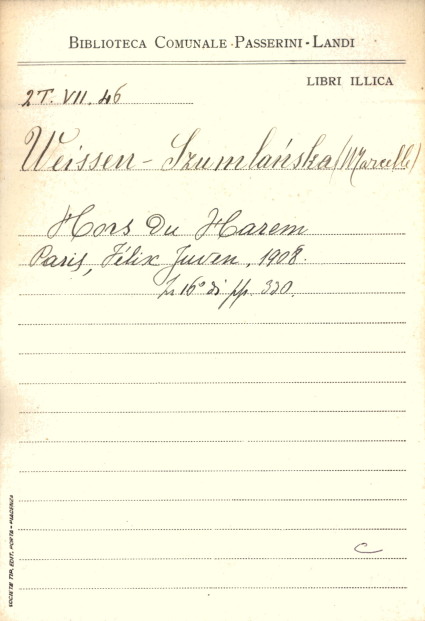 BIBLIOTECA COMUNALE PASSERINI-LANDI
LIBRI ILLICA
2T. VII. 46
Weissen-Szumlańska (Marcelle)
Hors du Harem
Paris, Félix Juven, 1908.
In 16° di pp. 320.
C
SOCIETÀ TIP. EDIT. PORTA - PIACENZA